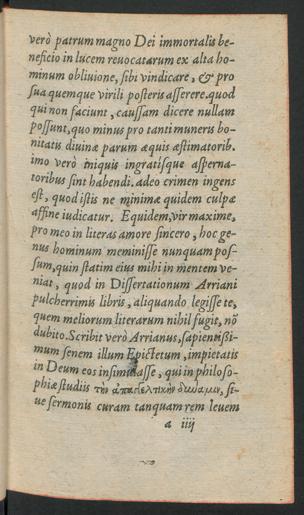 verò patrum magno Dei immortalis be-
neficio in lucem reuocatarum ex alta ho-
minum obliuione, sibi vindicare, & pro
sua quemque virili posteris asserere. quod
qui non faciunt, caussam dicere nullam
possunt, quo minus pro tanti muneris bo-
nitatis diuinæ parum æquis æstimatorib.
imo verò iniquis ingratisque asperna-
toribus sint habendi. adeo crimen ingens
est, quod istis ne minimæ quidem culpæ
affine iudicatur. Equidem, vir maxime,
pro meo in literas amore sincero, hoc ge-
nus hominum meminisse nunquam pos-
sum, quin statim eius mihi in mentem ve-
niat, quod in Dissertationum Arriani
pulcherrimis libris, aliquando legisse te,
quem meliorum literarum nihil fugit, nō
dubito. Scribit verò Arrianus, sapientissi-
mum senem illum Epictetum, impietatis
in Deum eos insimulasse, qui in philoso-
phiæ studiis τὴν ἀπαγγελτικὴν δύναμιν, si-
ue sermonis curam tanquam rem leuem
a iiij